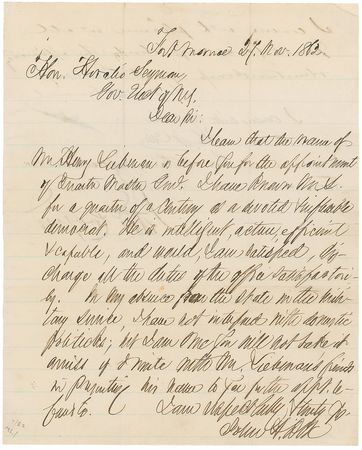 Fort Monroe 27. Nov. 1862
Hon. Horatio Seymour,
Gov. Elect of N.Y.
Dear Sir:
I learn that the name of
Mr. Henry Liebman is before you for the appointment
of Quarter Master Genl. I have known Mr. L.
for a quarter of a century as a devoted & reliable
democrat. He is intelligent, active, efficient
& capable, and would, I am satisfied, dis-
charge all the duties of the office satisfactori-
ly. In my absence from the State in the mili-
tary service, I have not interfered with domestic
politics; but I am sure you will not take it
amiss if I unite with Mr. Liebman's friends
in presenting his name to you for the app.
I am respectfully & truly Yr
John A. Dix